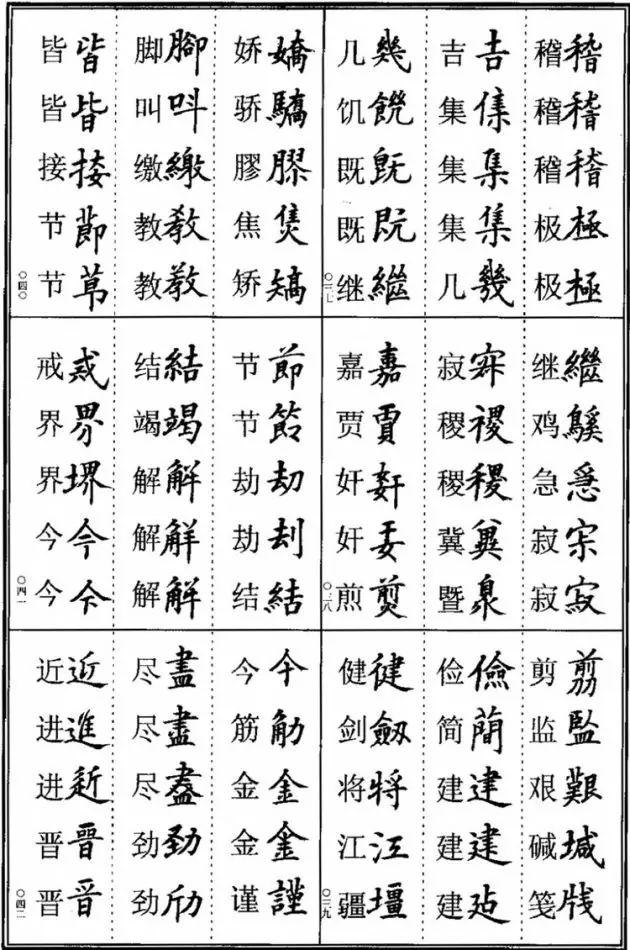 稽稽
稽稽
稽稽
极極
极極
吉吉
集
集集
集集
几幾
几幾
饥饑
既旣
既既
继繼
〇三七
继繼
鸡
急急
寂
寂寂
寂
稷稷
稷稷
冀冀
暨
嘉嘉
贾賈
奸姧
奸
煎
〇三八
剪剪
监監
艰艱
碱堿
笺牋
俭儉
简蕳
建建
建建
建
健健
剑劔
将將
江江
疆壃
〇三九
娇嬌
骄驕
膠膠
焦
矫矯
脚腳
叫呌
缴繳
教敎
教教
皆皆
皆皆
接接
节節
节莭
〇四〇
节節
节
劫刧
劫刦
结結
结結
竭竭
解解
解觧
解觧
戒戒
界界
界堺
今今
今今
〇四一
今今
筋觔
金金
金金
谨謹
尽盡
尽盡
尽盡
劲勁
劲
近近
进進
进
晋晉
晋晋
〇四二